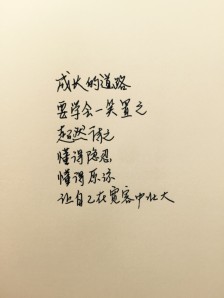 成长的道路
要学会一笑置之
超然待之
懂得隐忍
懂得原谅
让自己在宽容中壮大